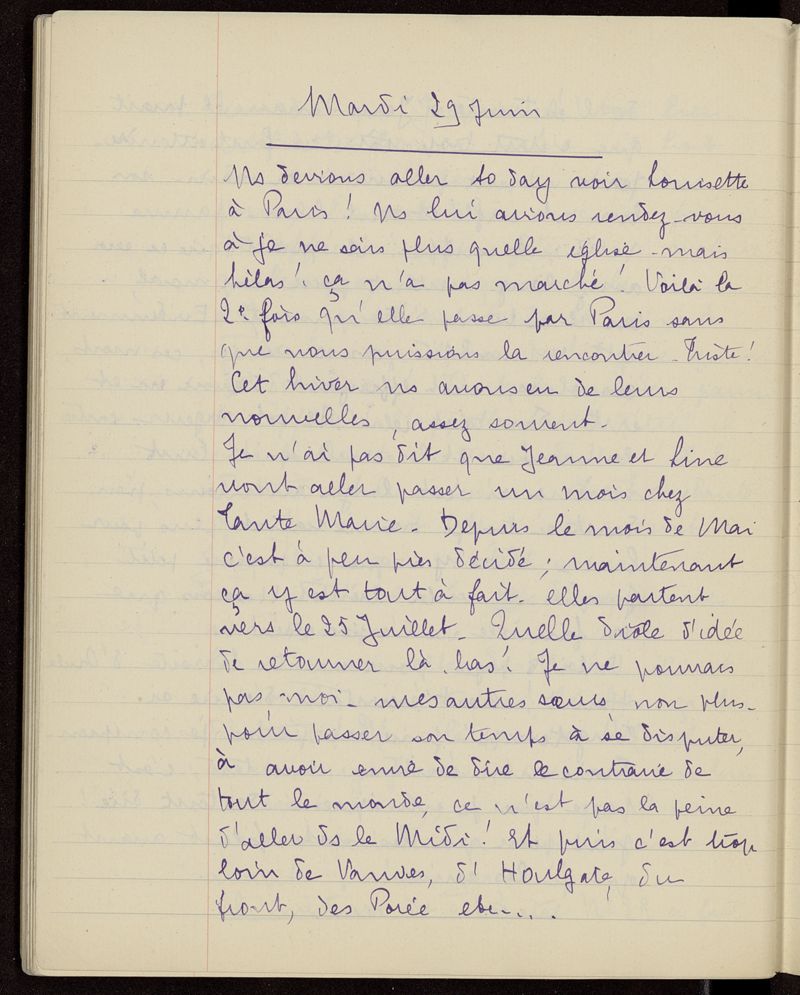 Mardi 29 Juin
Ns devions aller to day voir Louisette
à Paris ! Ns lui avions rendez-vous
à je ne sais plus quelle église - mais
hélas ! ça n'a pas marché ! Voilà la
2e fois qu'elle passe par Paris sans
que nous puissions la rencontrer - Triste !
Cet hiver ns avons eu de leurs
nouvelles, assez souvent -
Je n'ai pas dit que Jeanne et Line
vont aller passer un mois chez
Tante Marie - Depuis le mois de Mai
c'est à peu près décidé ; maintenant
ça y est tout à fait - elles partent
vers le 25 Juillet - Quelle drôle d'idée
de retourner là-bas ! Je ne pourrais
pas, moi - mes autres sœurs non plus -
pour passer son temps à se disputer,
à avoir envie de dire le contraire de
tout le monde, ce n'est pas la peine
d'aller ds le Midi ! Et puis c'est trop
loin de Vanves, d'Houlgate, du
front, des Porée etc....